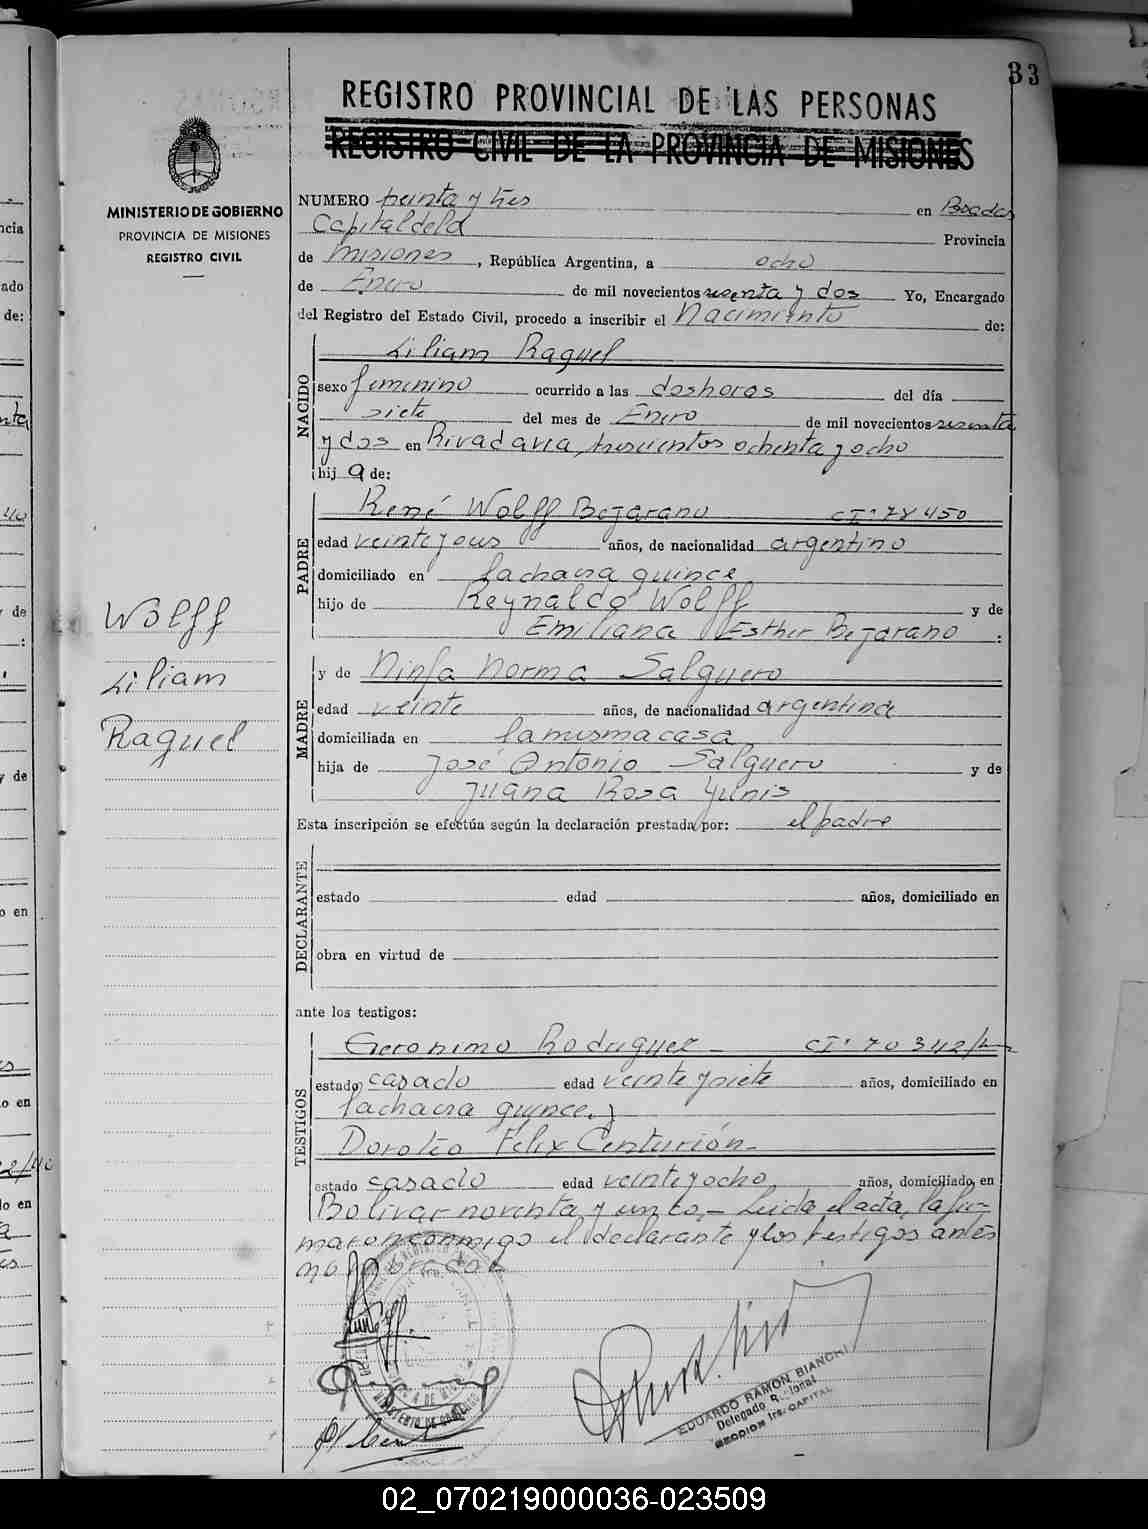 33
REGISTRO PROVINCIAL DE LAS PERSONAS
REGISTRO CIVIL DE LA PROVINCIA DE MISIONES
MINISTERIO DE GOBIERNO
PROVINCIA DE MISIONES
REGISTRO CIVIL
NUMERO treinta y tres en Posadas
Capital de la Provincia
de Misiones, República Argentina, a ocho
de Enero de mil novecientos sesenta y dos Yo, Encargado
del Registro del Estado Civil, procedo a inscribir el Nacimiento de:
NACIDO
Liliam Raquel
sexo femenino ocurrido a las dos horas del día
siete del mes de Enero de mil novecientos sesenta
y dos en Rivadavia trescientos ochenta y ocho
hij a de:
PADRE
René Wolff Bejarano CI: 78450
edad veinte y años, de nacionalidad argentino
domiciliado en la chacra quince
hijo de Reynaldo Wolff y de
Emiliana Esther Bejarano :
MADRE
y de Ninfa Norma Salguero
edad veinte años, de nacionalidad argentina
domiciliada en la misma casa
hija de José Antonio Salguero y de
Juana Rosa Yunis
Esta inscripción se efectúa según la declaración prestada por: el padre
DECLARANTE
estado edad años, domiciliado en
obra en virtud de
ante los testigos:
TESTIGOS
Geronimo Rodriguez - CI: 70342
estado casado edad veinte y siete años, domiciliado en
la chacra quince y
Doroteo Félix Centurión -
estado casado edad veinte y ocho años, domiciliado en
Bolivar noventa y un co, - Leida el acta, la fir-
maron conmigo el declarante y los testigos antes
nombrados
Wolff
Liliam
Raquel
EDUARDO RAMON BIANCHI
Delegado Regional
SECCION 1ra. CAPITAL
02_070219000036-023509